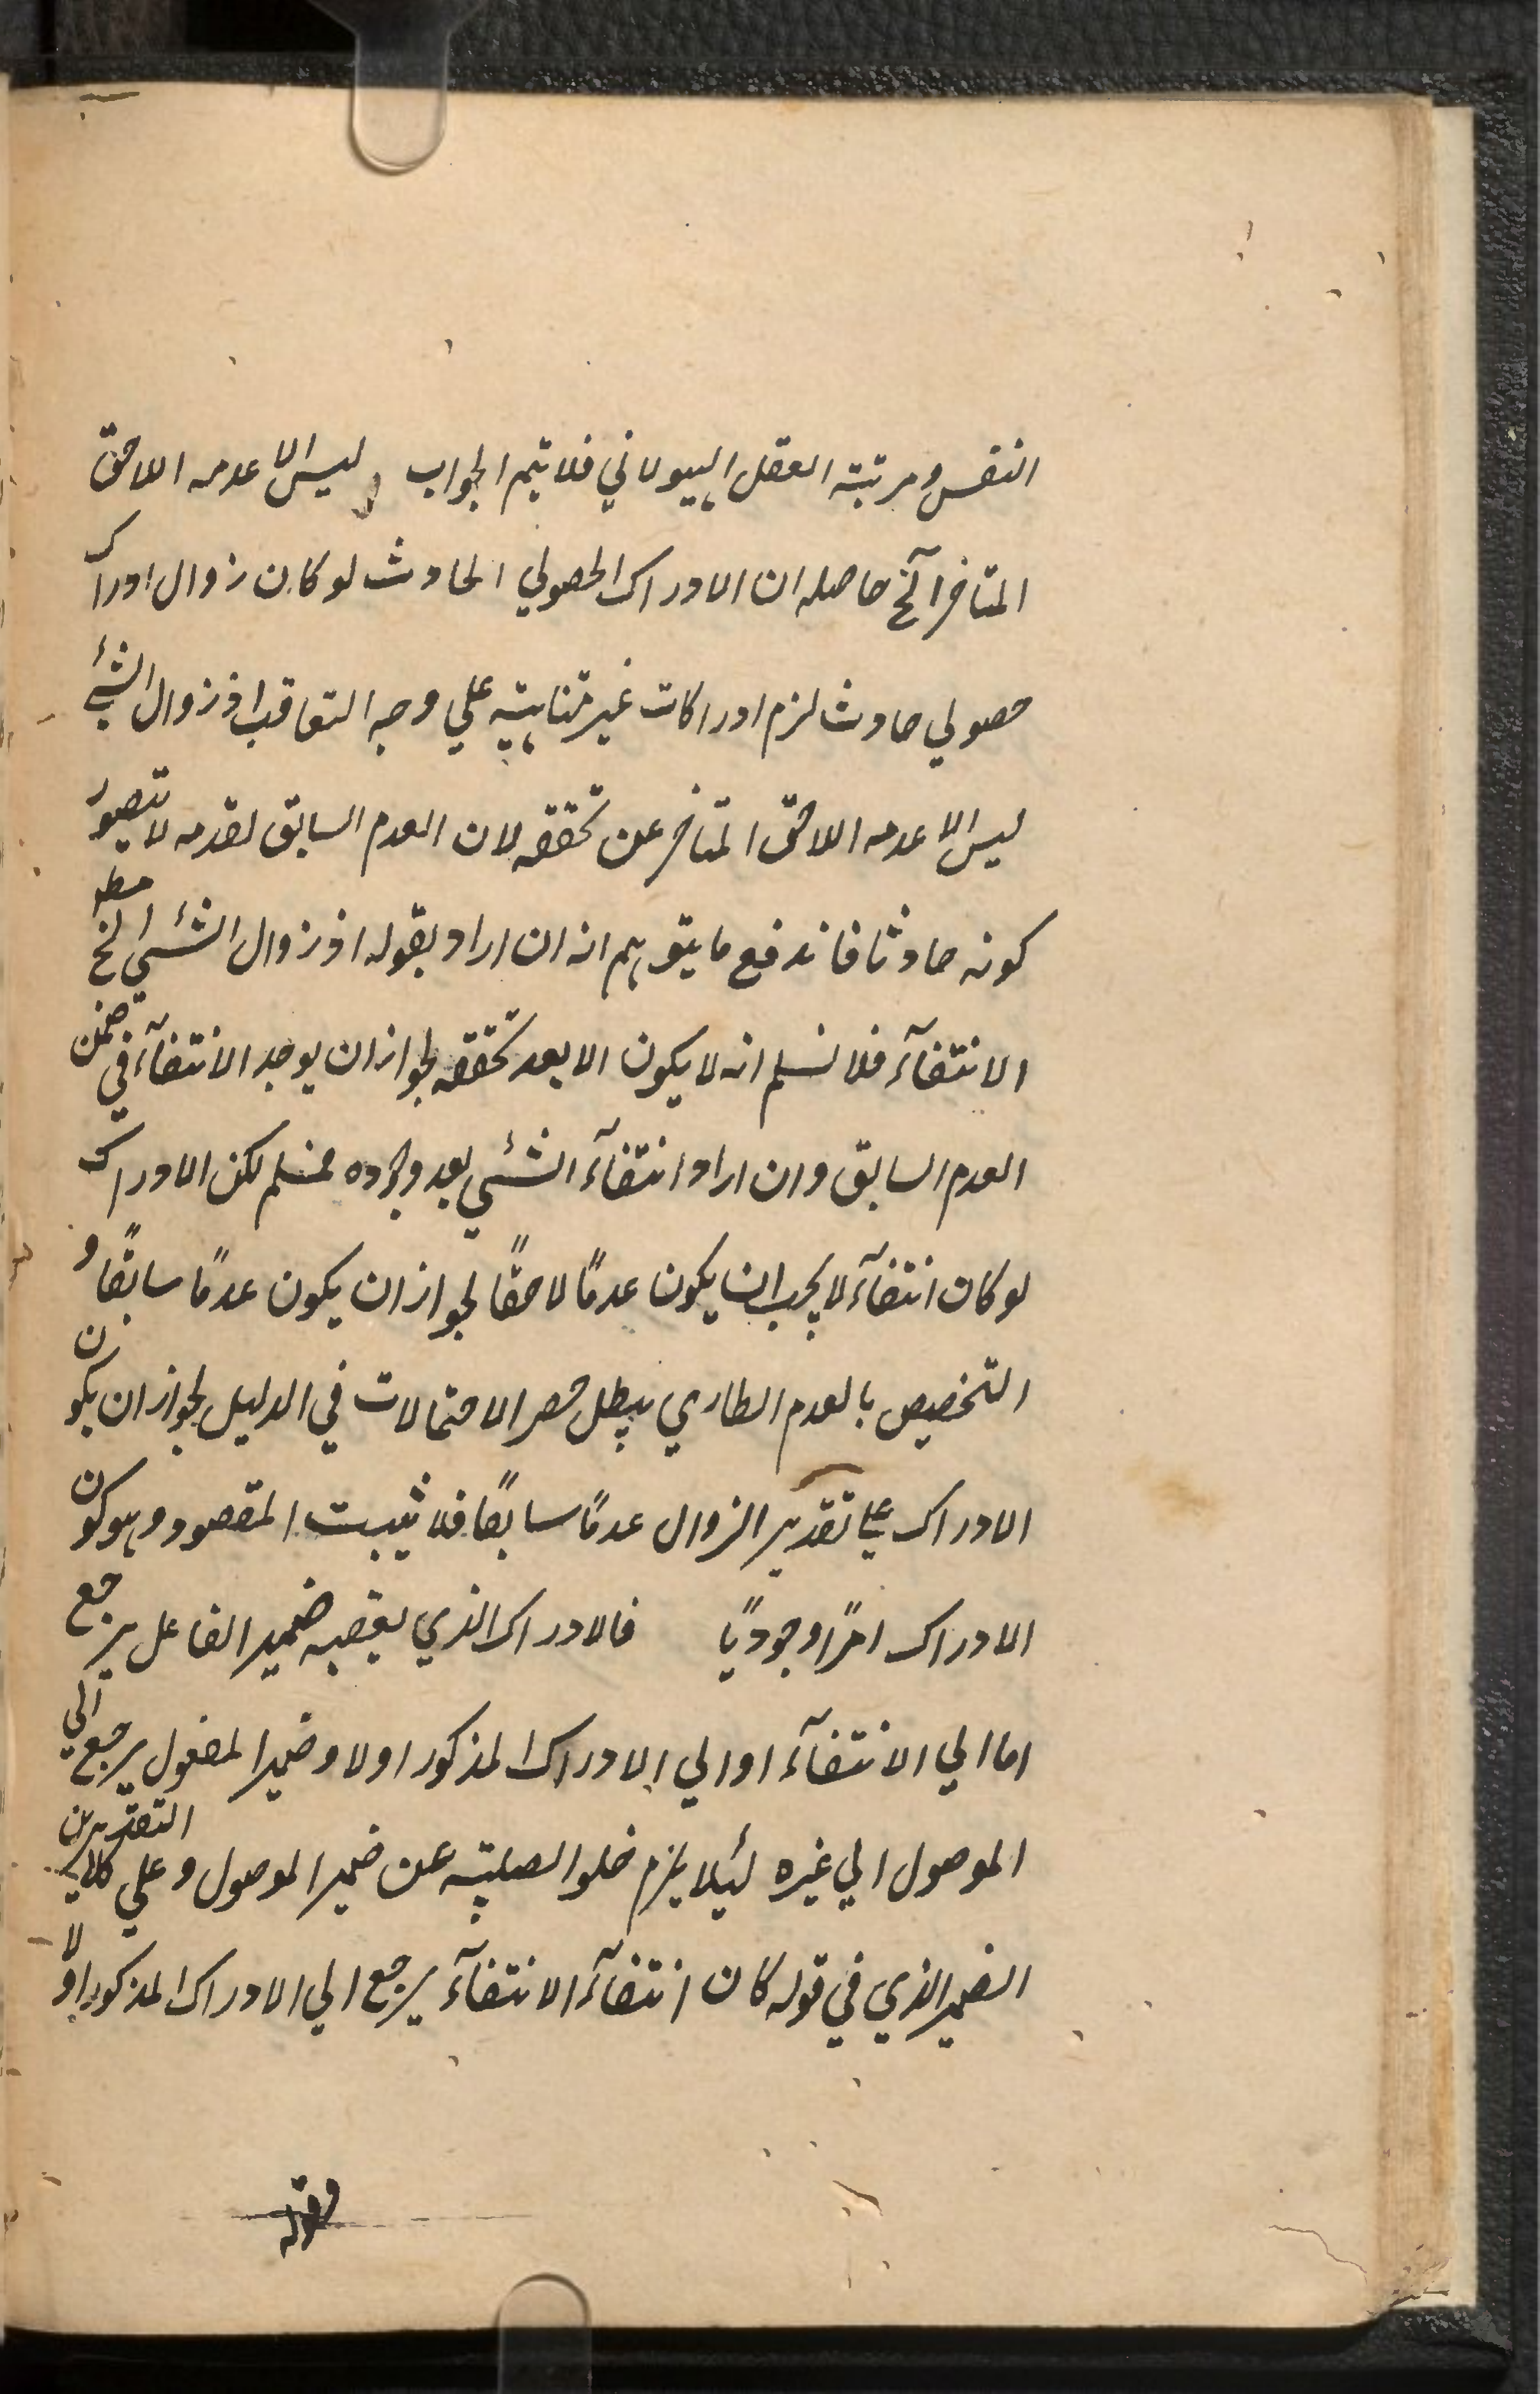 النفس ومرتبة العقل الهيولاني فلا يتم الجواب و ليس الا عدمه اللاحق
المتاخر آلخ حاصله ان الادراك الحصولي الحادث لو كان زوال ادراك
حصولي حادث لزم ادراكات غير متناهية علي وجه التعاقب اذ زوال الشئ
ليس الا عدمه اللاحق المتاخر عن تحققه لان العدم السابق لقدمه لا يتصور
كونه حادثا فاندفع ما يتوهم انه ان اراد بقوله اذ زوال الشئي الخ مطلق
الانتفآء فلا نسلم انه لا يكون الا بعد تحققه لجواز ان يوجد الانتفآء في ضمن
العدم السابق وان اراد انتفآء الشئي بعد وجوده فمسلم لكن الادراك
لو كان انتفآء لا يجب ان يكون عدمًا لاحقًا لجواز ان يكون عدمًا سابقًا و
التخصيص بالعدم الطاري يبطل حصر الاحتمالات في الدليل لجواز ان يكون
الادراك علي تقدير الزوال عدمًا سابقًا فلا يثبت المقصود وهو كون
الادراك امرًا وجوديًا فالادراك الذي يعقبه ضمير الفاعل يرجع
اما الي الانتفآء او الي الادراك المذكور اولا وضمير المفعول يرجع الي
الموصول الي غيره لئلا يلزم خلو الصلية عن ضمير الموصول و علي كلاي التقديرين
الضمير الذي في قوله كان انتفآء الانتفآء يرجع الي الادراك المذكور اولا